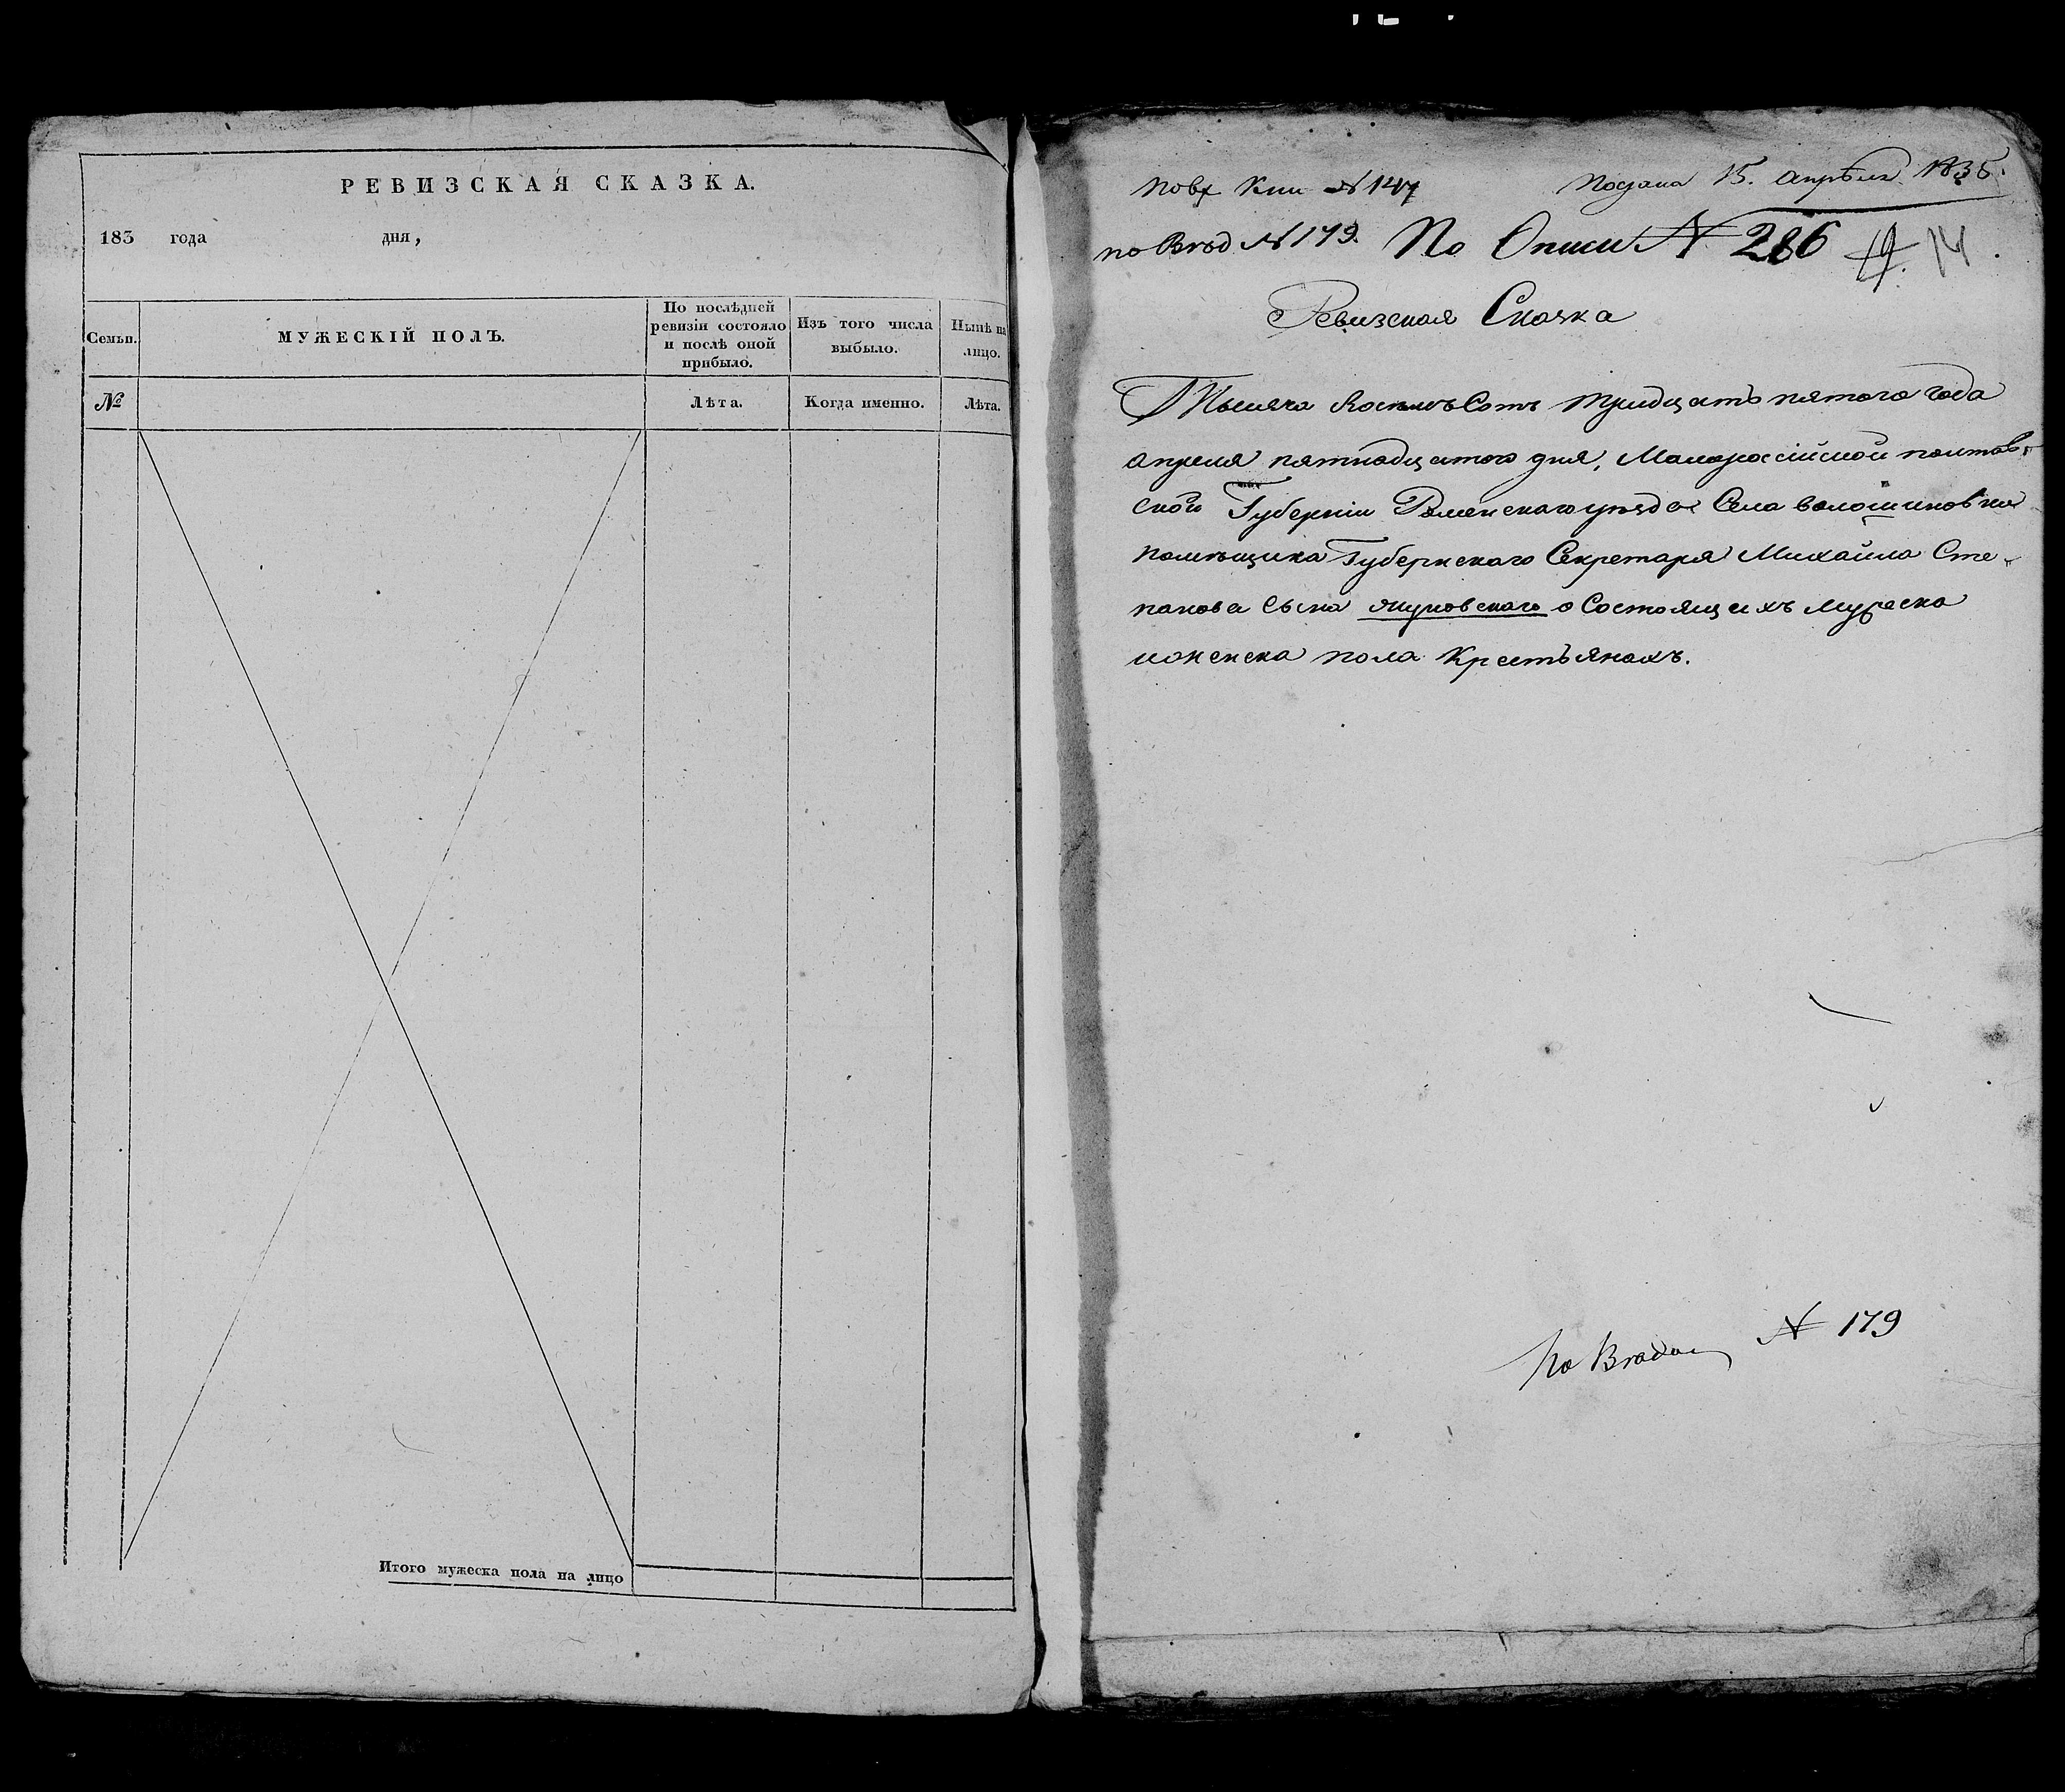 РЕВИЗСКАЯ СКАЗКА.
183 года дня,
Семьи.
МУЖЕСКІЙ ПОЛЪ.
По послѣдней
ревизіи состояло
и послѣ оной
прибыло.
Изъ того числа
выбыло.
Нынѣ на
лицо.
№
Лѣта.
Когда именно.
Лѣта.
Итого мужеска пола на лицо
Подана 15. апрѣля 1835.
по Вѣд № 179. По Описи № 286 14
Ревизская Сказка
Тысяча восемъ Сотъ тридцать пятого года
апреля пятнадцатого дня, Малороссійской полтав-
ской Губерніи Роменского уѣзда Села волошиновки
помѣщика Губернского Секретаря Михайла Сте-
панова сына о Состоящихъ мужеска
иженска пола Крестьянахъ.
№ 179